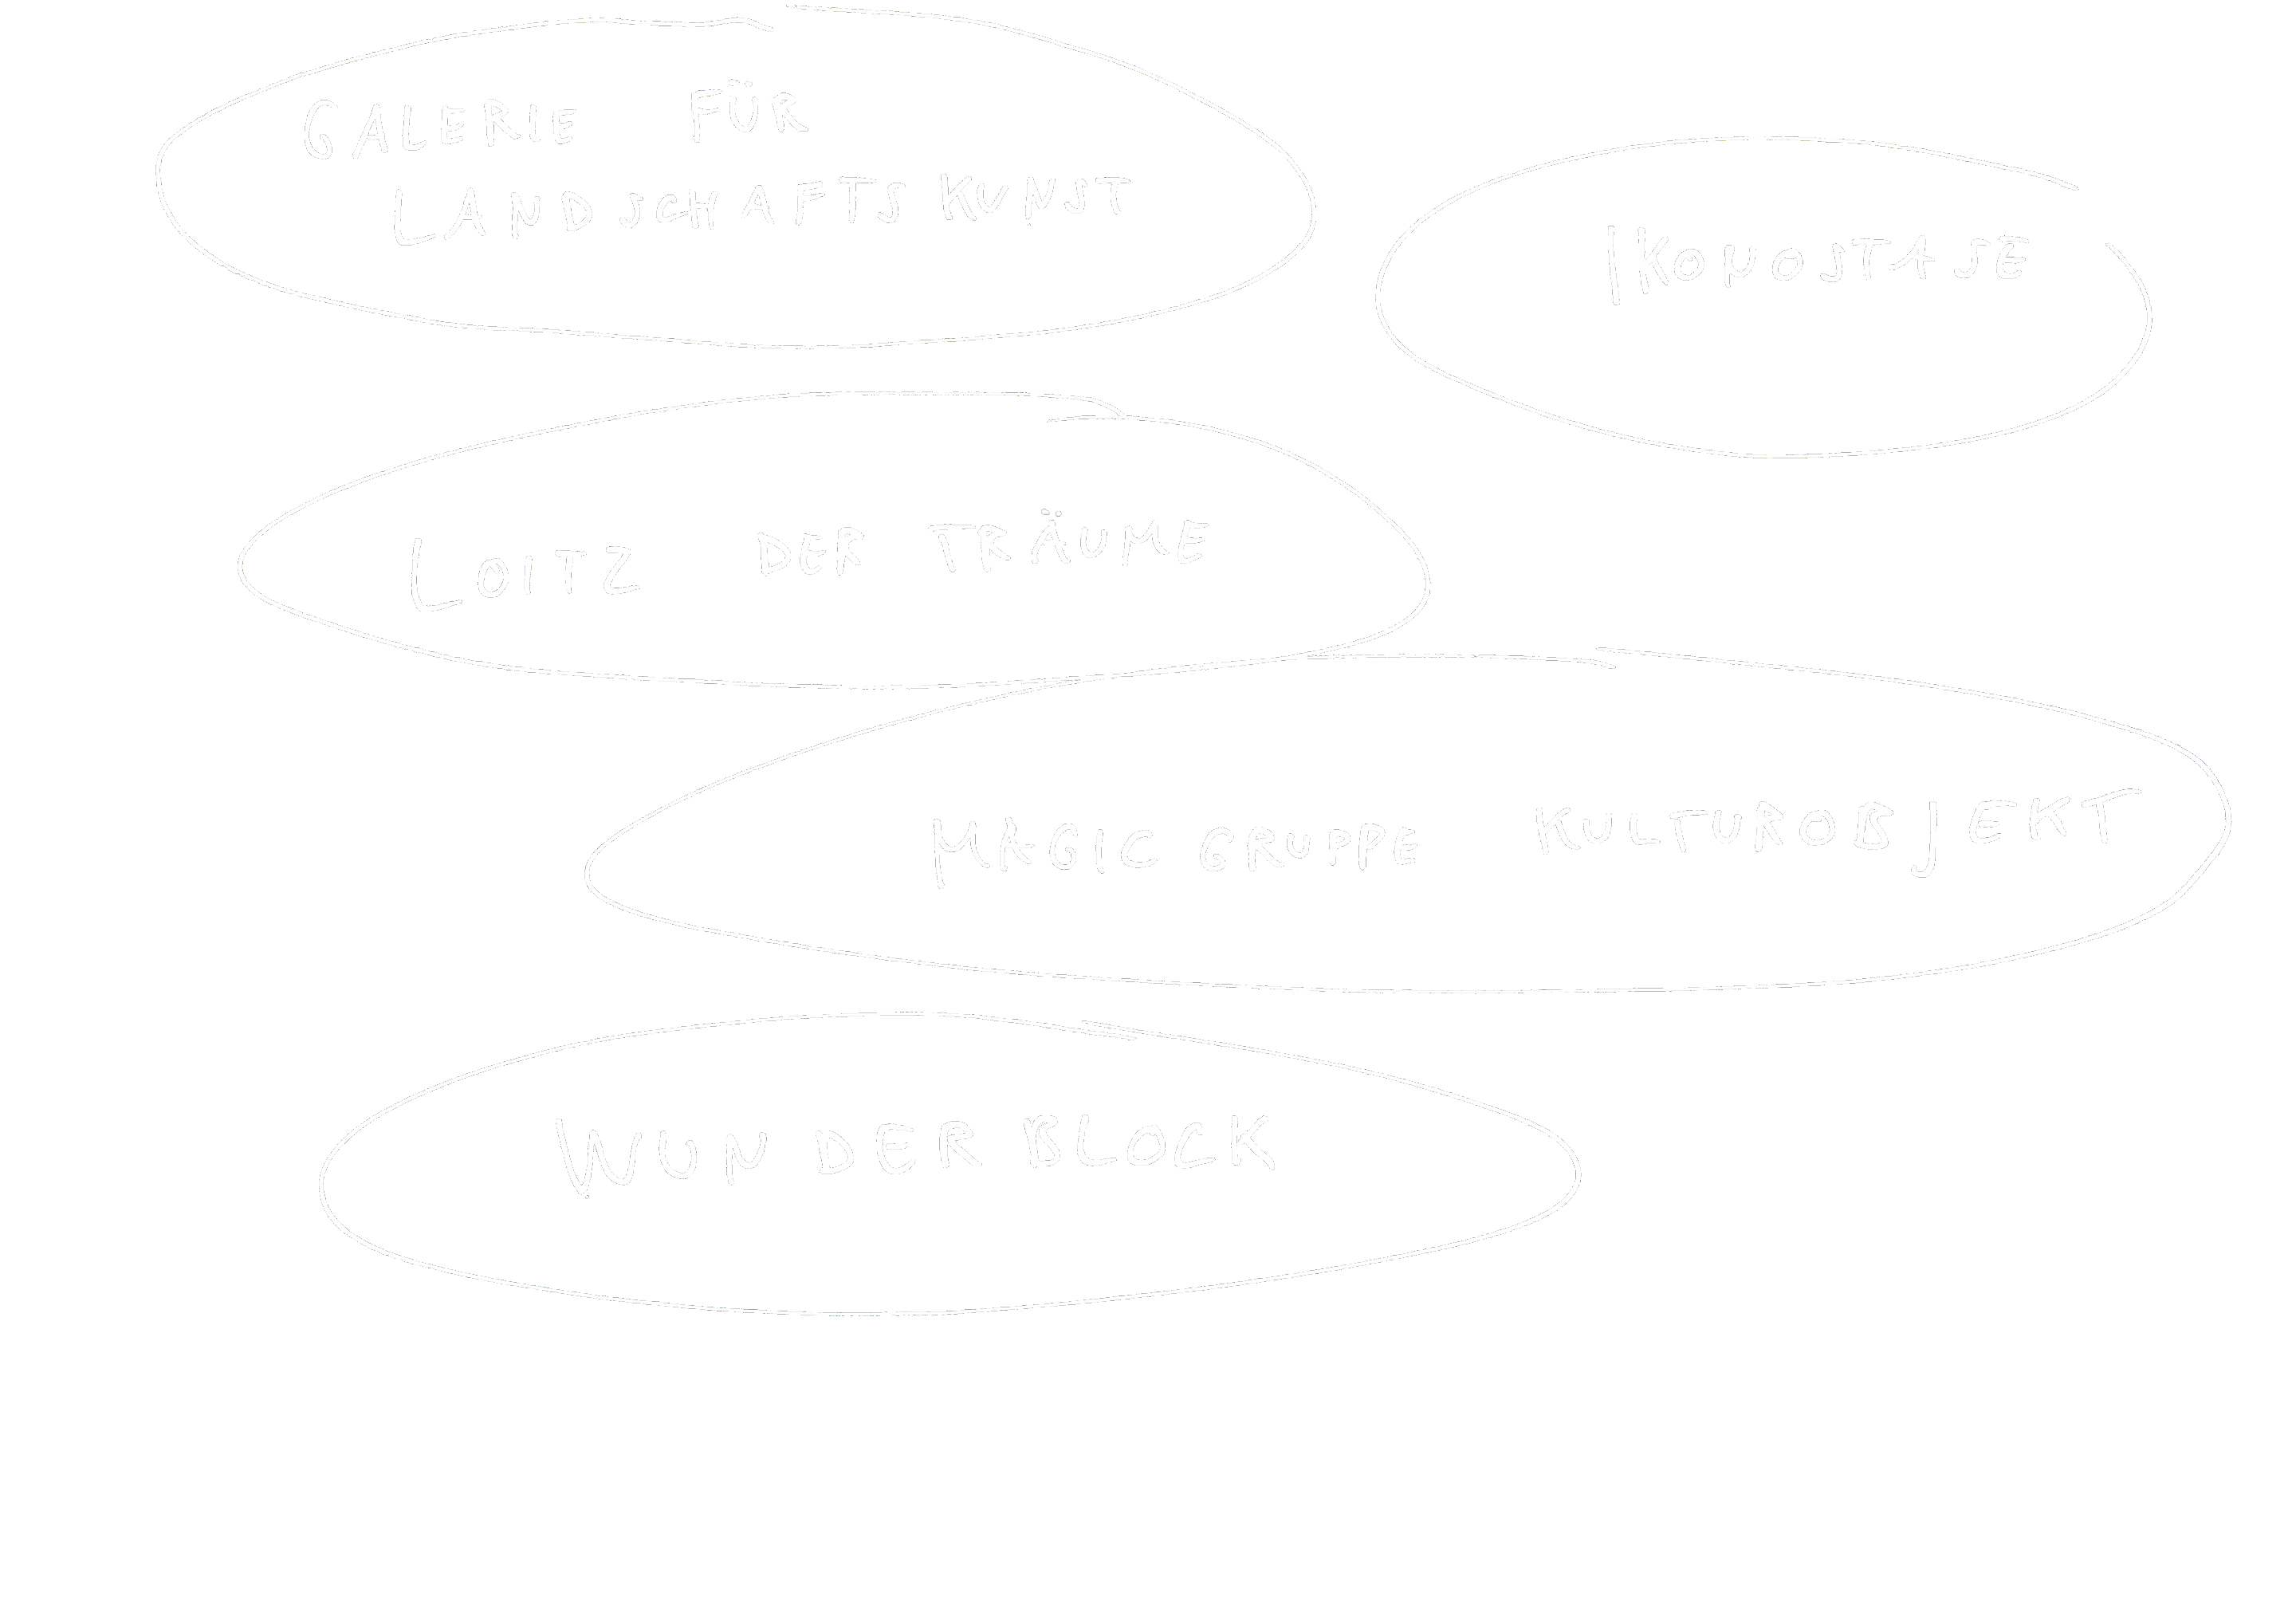 GALERIE FÜR
LANDSCHAFTSKUNST
IKONOSTASE
LOITZ DER TRÄUME
MAGIC GRUPPE KULTUROBJEKT
WUNDERBLOCK